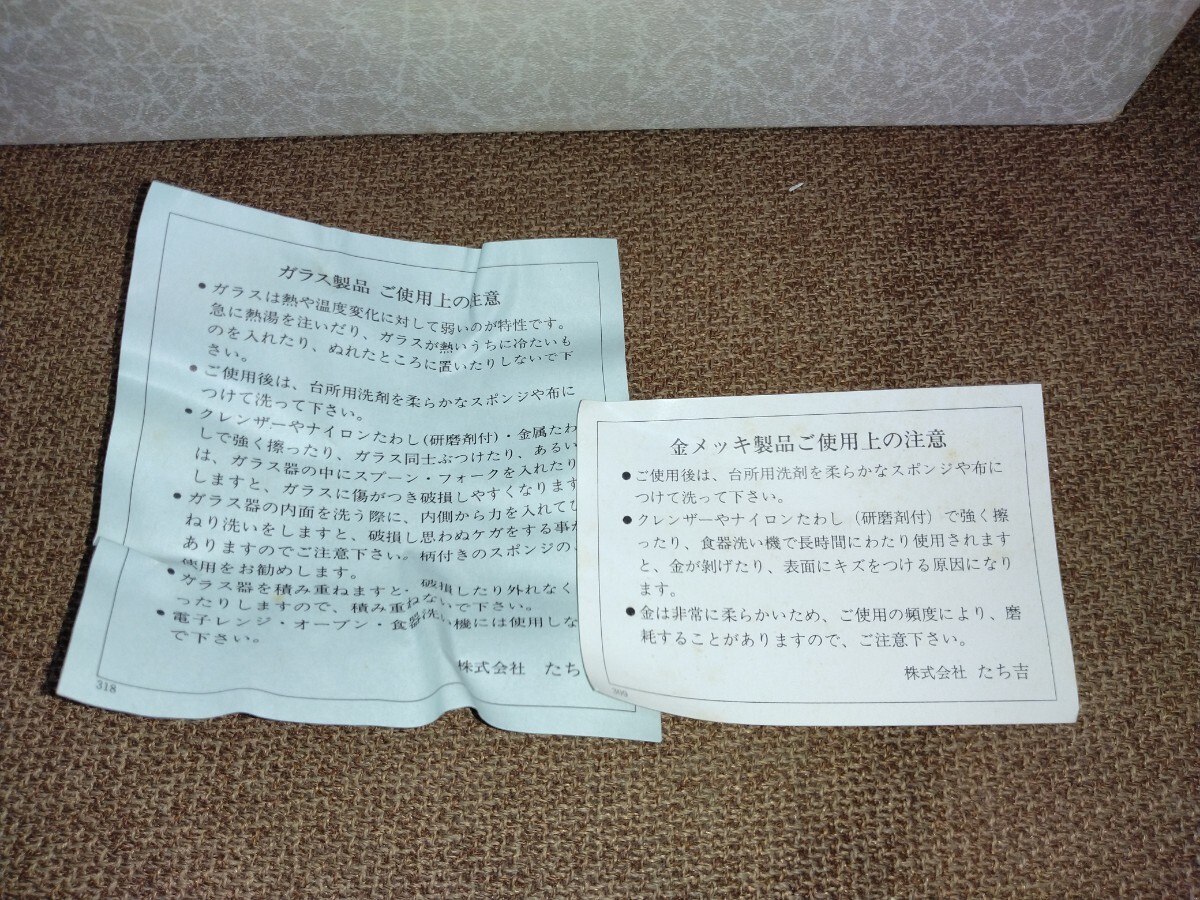 ガラス製品 ご使用上の注意
●ガラスは熱や温度変化に対して弱いのが特性です。
急に熱湯を注いだり、ガラスが熱いうちに冷たいも
のを入れたり、ぬれたところに置いたりしないで下
さい。
●ご使用後は、台所用洗剤を柔らかなスポンジや布に
つけて洗って下さい。
●クレンザーやナイロンたわし(研磨剤付)・金属たわ
しで強く擦ったり、ガラス同士ぶつけたり、あるい
は、ガラス器の中にスプーン・フォークを入れたり
しますと、ガラスに傷がつき破損しやすくなります
●ガラス器の内面を洗う際に、内側から力を入れてひ
ねり洗いをしますと、破損し思わぬケガをする事が
ありますのでご注意下さい。柄付きのスポンジの
使用をお勧めします。
●ガラス器を積み重ねますと、破損したり外れなく
ったりしますので、積み重ねないで下さい。
●電子レンジ・オーブン・食器洗い機には使用しな
で下さい。
株式会社 たち
318
金メッキ製品ご使用上の注意
●ご使用後は、台所用洗剤を柔らかなスポンジや布に
つけて洗って下さい。
●クレンザーやナイロンたわし(研磨剤付)で強く擦
ったり、食器洗い機で長時間にわたり使用されます
と、金が剥げたり、表面にキズをつける原因になり
ます。
●金は非常に柔らかいため、ご使用の頻度により、磨
耗することがありますので、ご注意下さい。
株式会社 たち吉